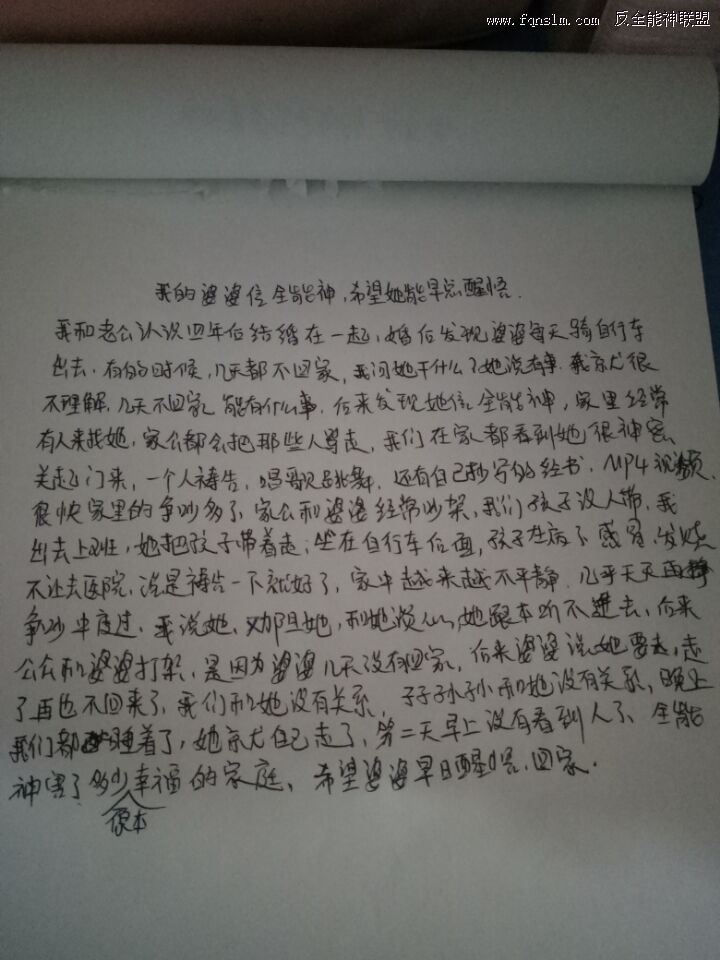 www.fqnslm.com 反全能神联盟
我的婆婆信全能神,希望她能早点醒悟.
我和老公认识四年后结婚在一起,婚后发现婆婆每天骑自行车
出去.有的时候,几天都不回家,我问她干什么了她说有事.我就很
不理解,几天不回家能有什么事,后来发现她信全能神,家里经常
有人来找她,家公都会把那些人骂走,我们在家都看到她很神密、
关起门来,一个人祷告,唱歌跳舞,还有自己抄写的经书,MP4视频,
很快家里的争吵多了,家公和婆婆经常吵架,我们孩子没人带,我
出去上班,她把孩子带着走;坐在自行车后面,孩子生病了感冒、发烧
不让去医院,说是祷告一下就好了,家中越来越不平静.几乎天天再
争吵中度过.我说她,劝阻她,和她谈心,她跟本听不进去,后来
公公和婆婆打架,是因为婆婆几天没有回家,后来婆婆说她要走,走
了再也不回来了,我们和她没有关系,子子孙孙和她没有关系,晚上
我们都睡着了,她就自己走了,第二天早上没有看到人了、全能
神害了多少原本幸福的家庭、希望婆婆早日醒悟.回家.